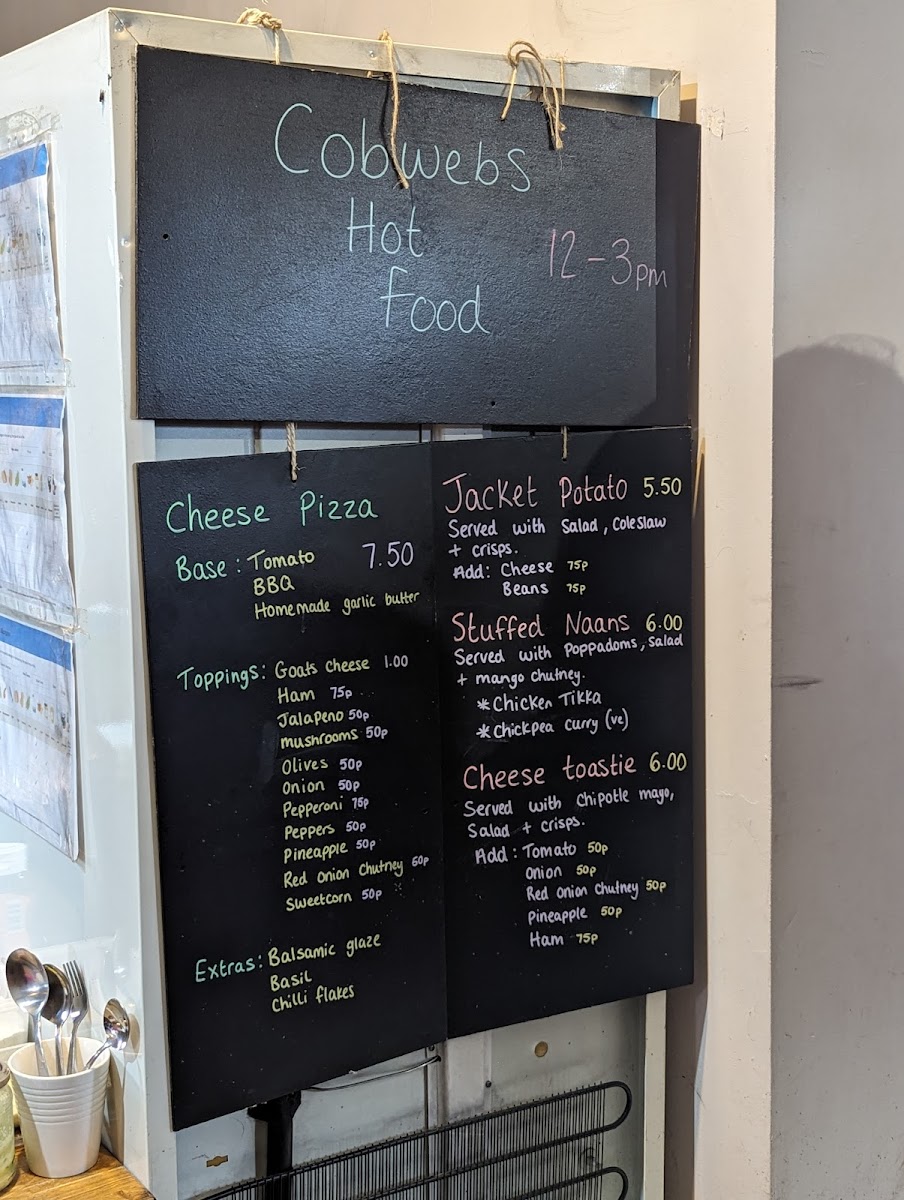 Cobwebs
Hot
Food
12-3pm
Cheese Pizza
Base: Tomato 7.50
BBQ
Homemade garlic butter
Toppings: Goats cheese 1.00
Ham 75p
Jalapeno 50p
mushrooms 50p
Olives 50p
Onion 50p
Pepperoni 75p
Peppers 50p
Pineapple 50p
Red onion Chutney 50p
Sweetcorn 50p
Extras: Balsamic glaze
Basil
Chilli flakes
Jacket Potato 5.50
Served with Salad, Coleslaw
+ crisps.
Add: Cheese 75p
Beans 75p
Stuffed Naans 6.00
Served with Poppadoms, salad
+ mango chutney.
*Chicken Tikka
*Chickpea curry (ve)
Cheese toastie 6.00
Served with Chipotle mayo,
Salad + crisps.
Add: Tomato 50p
onion 50p
Red onion Chutney 50p
Pineapple 50p
Ham 75p